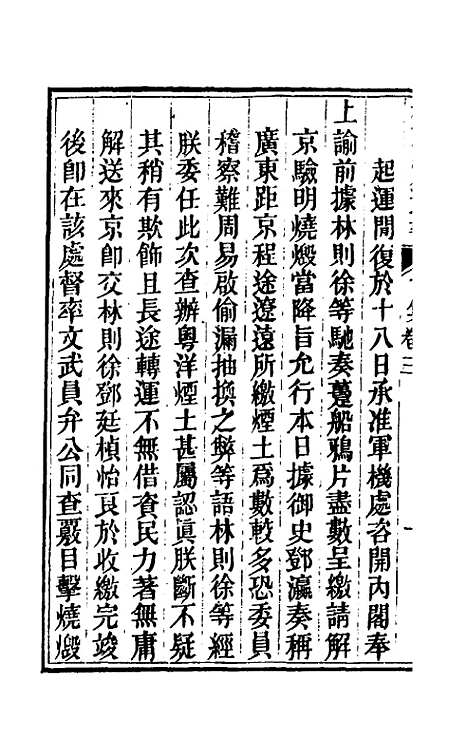 起運閒復於十八日承准軍機處咨開內閣奉
上諭前據林則徐等馳奏躉船鴉片盡數呈繳請解
京驗明燒燬當降旨允行本日據御史鄧瀛奏稱
廣東距京程途遼遠所繳煙土爲數較多恐委員
稽察難周易啟偷漏抽換之弊等語林則徐等經
朕委任此次查辦粵洋煙土甚屬認眞朕斷不疑
其稍有欺飾且長途轉運不無借資民力著無庸
解送來京卽交林則徐鄧廷楨怡良於收繳完竣
後卽在該處督率文武員弁公同查覈目擊燒燬